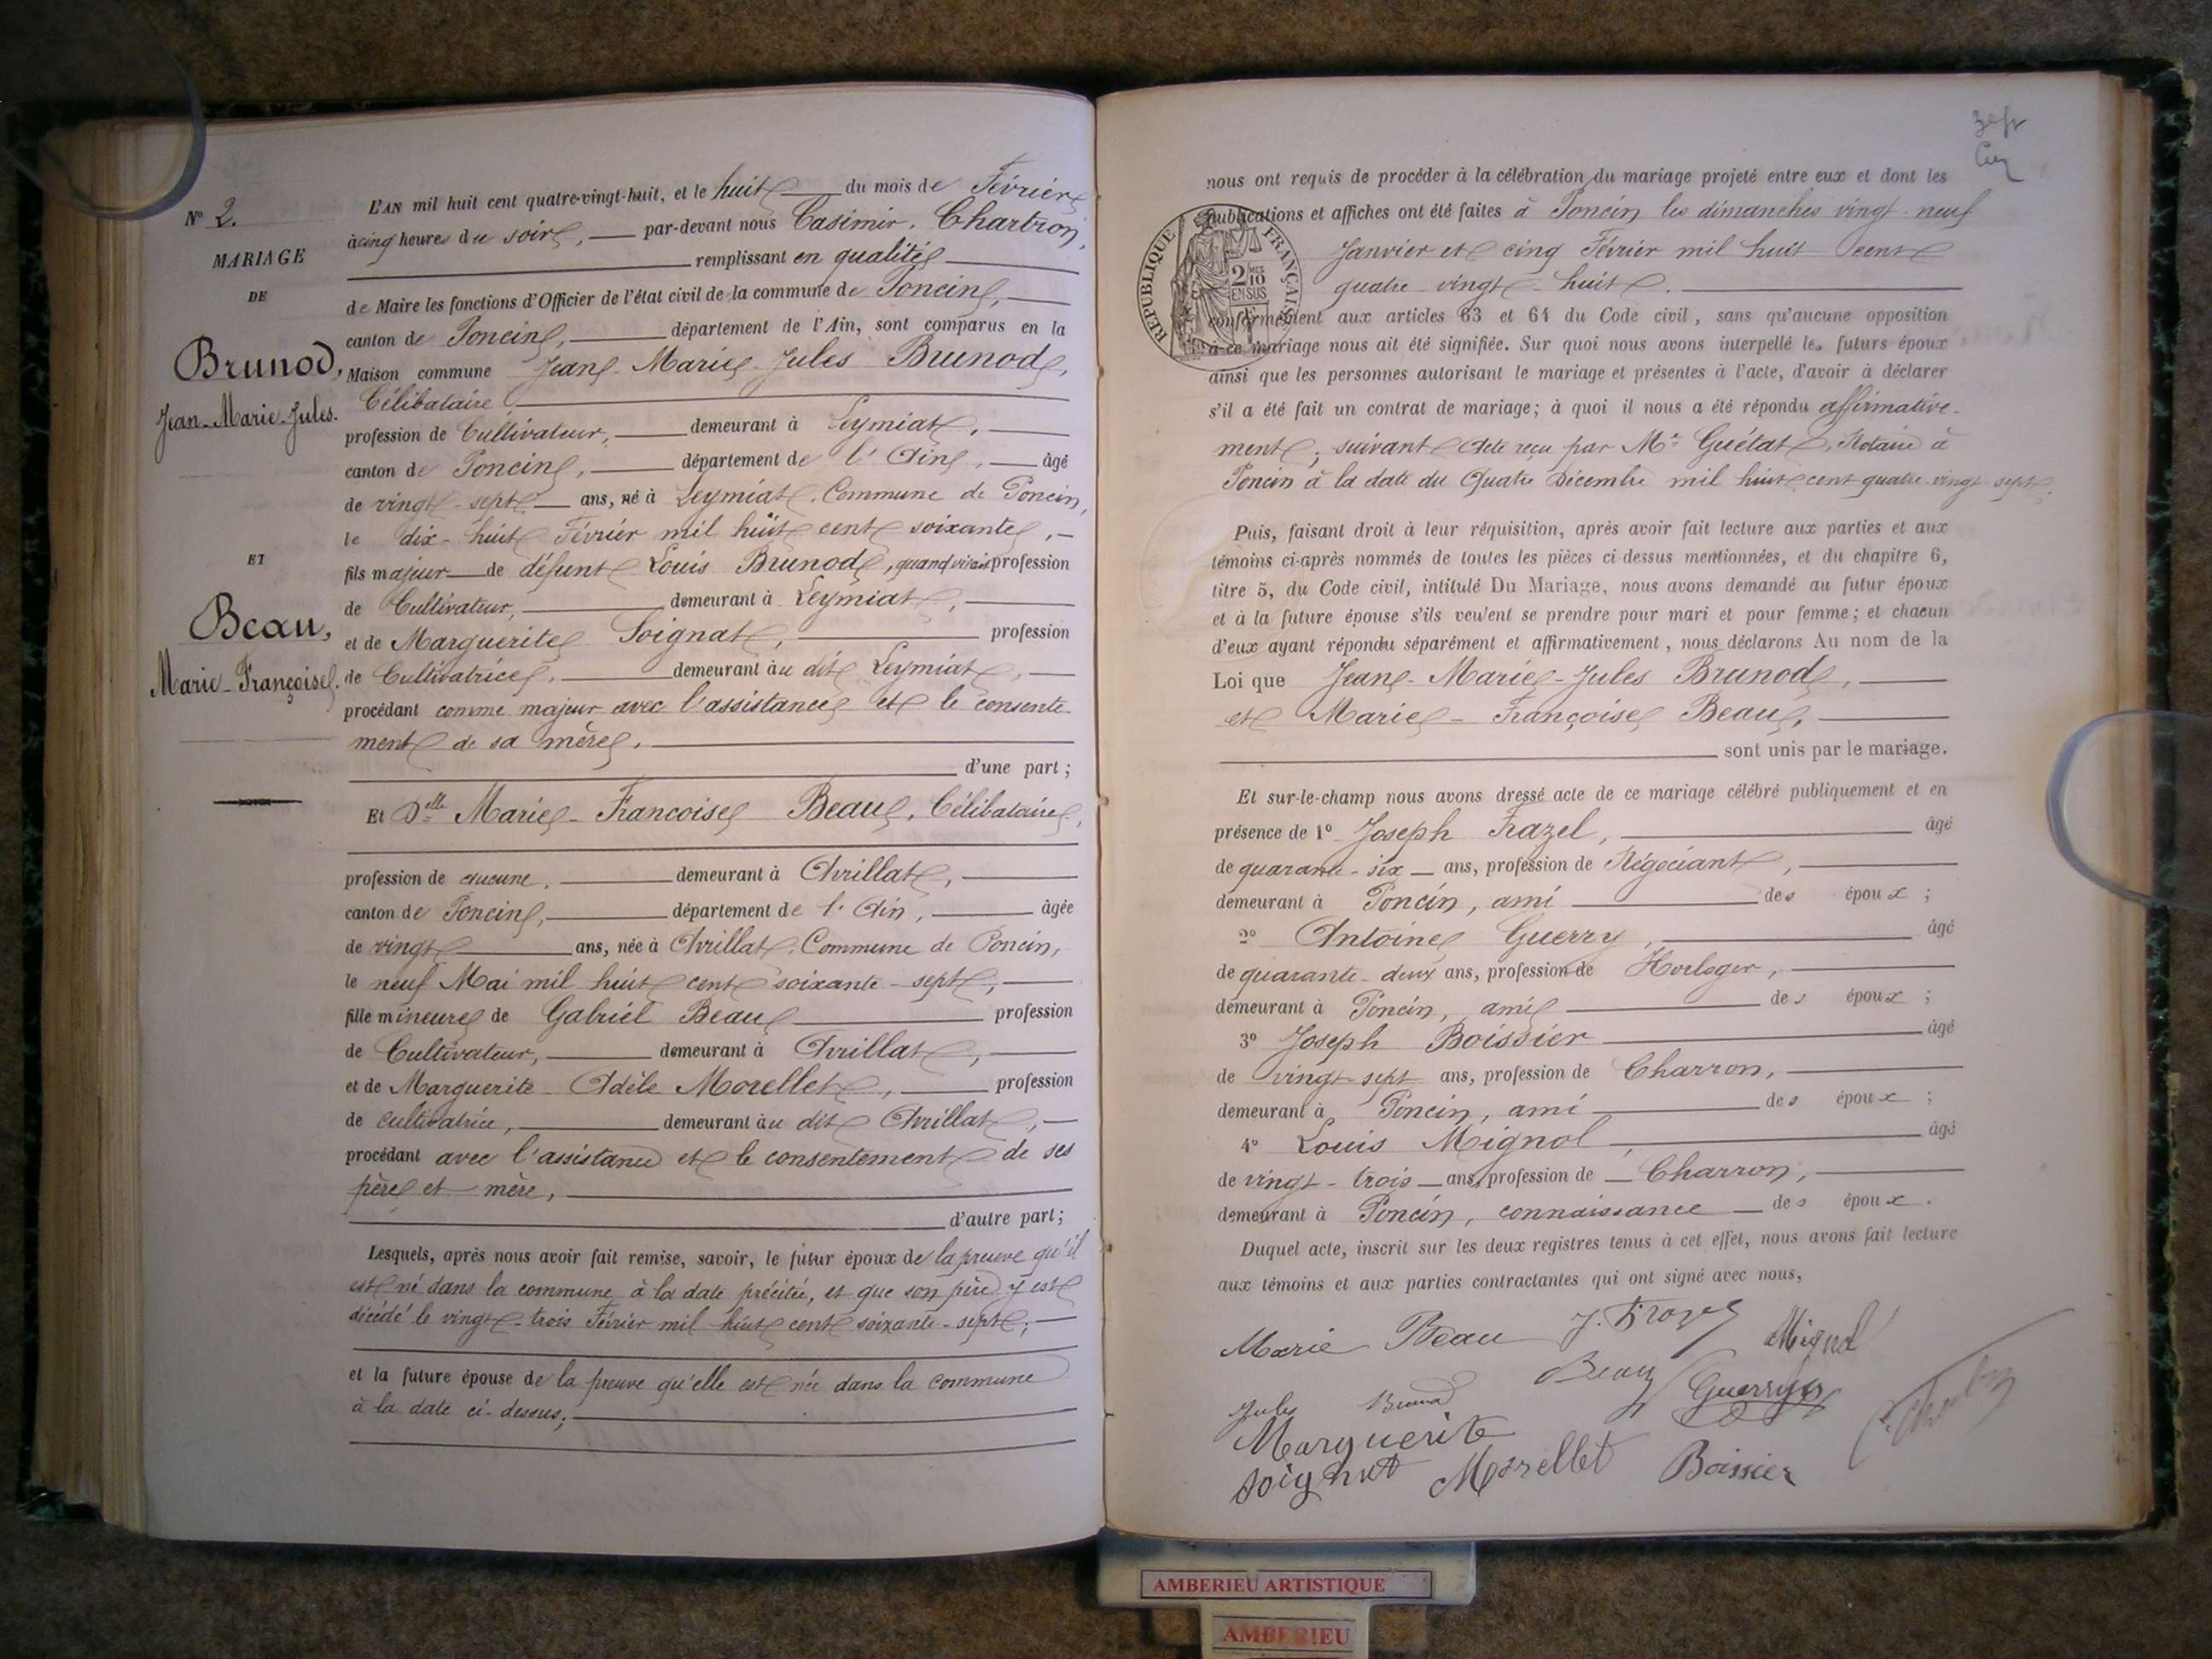 N° 2.
MARIAGE
DE
Brunod,
Jean-Marie-Jules.
ET
Beau,
Marie-Françoise.
L'AN mil huit cent quatre-vingt-huit, et le huit du mois de Février
à cinq heures du soir, par-devant nous Casimir Chartron,
remplissant en qualité
de Maire les fonctions d'Officier de l'état civil de la commune de Poncin,
canton de Poncin, département de l'Ain, sont comparus en la
Maison commune Jean-Marie-Jules Brunod,
Célibataire
profession de Cultivateur, demeurant à Leymiat,
canton de Poncin, département de l'Ain, âgé
de vingt-sept ans, né à Leymiat, Commune de Poncin,
le dix-huit Février mil huit cent soixante,
fils majeur de défunt Louis Brunod, quand vivait profession
de Cultivateur, demeurant à Leymiat,
et de Marguerite Soignat, profession
de Cultivatrice, demeurant au dit Leymiat,
procédant comme majeur avec l'assistance et le consente-
ment de sa mère.
d'une part;
Et Delle Marie-Francoise Beau, Célibataire,
profession de aucune, demeurant à Avrillat,
canton de Poncin, département de l'Ain, âgée
de vingt ans, née à Avrillat, Commune de Poncin,
le neuf Mai mil huit cent soixante-sept,
fille mineure de Gabriel Beau profession
de Cultivateur, demeurant à Avrillat,
et de Marguerite Adèle Morellet, profession
de cultivatrice, demeurant au dit Avrillat,
procédant avec l'assistance et le consentement de ses
père et mère,
d'autre part;
Lesquels, après nous avoir fait remise, savoir, le futur époux de la preuve qu'il
est né dans la commune à la date précitée, et que son père y est
décédé le vingt-trois Février mil huit cent soixante-sept;
et la future épouse de la preuve qu'elle est née dans la commune
à la date ci-dessus;
nous ont requis de procéder à la célébration du mariage projeté entre eux et dont les
publications et affiches ont été faites à Poncin les dimanches vingt-neuf
Janvier et cinq Février mil huit cent
quatre vingt huit.
RÉPUBLIQUE FRANÇAISE
2/10
EN SUS
conformément aux articles 63 et 64 du Code civil, sans qu'aucune opposition
à ce mariage nous ait été signifiée. Sur quoi nous avons interpellé les futurs époux
ainsi que les personnes autorisant le mariage et présentes à l'acte, d'avoir à déclarer
s'il a été fait un contrat de mariage; à quoi il nous a été répondu affirmative-
ment; suivant acte reçu par Me Guétat, Notaire à
Poncin à la date du Quatre Décembre mil huit cent quatre-vingt-sept.
Puis, faisant droit à leur réquisition, après avoir fait lecture aux parties et aux
témoins ci-après nommés de toutes les pièces ci-dessus mentionnées, et du chapitre 6,
titre 5, du Code civil, intitulé Du Mariage, nous avons demandé au futur époux
et à la future épouse s'ils veulent se prendre pour mari et pour femme; et chacun
d'eux ayant répondu séparément et affirmativement, nous déclarons Au nom de la
Loi que Jean-Marie-Jules Brunod,
et Marie-Françoise Beau,
sont unis par le mariage.
Et sur-le-champ nous avons dressé acte de ce mariage célébré publiquement et en
présence de 1° Joseph Frazel, âgé
de quarante-six ans, profession de Négociant,
demeurant à Poncin, ami des époux;
2° Antoine Guerry, âgé
de quarante-deux ans, profession de Horloger,
demeurant à Poncin, ami des époux;
3° Joseph Boissier âgé
de vingt-sept ans, profession de Charron,
demeurant à Poncin, ami des époux;
4° Louis Mignol, âgé
de vingt-trois ans, profession de Charron,
demeurant à Poncin, connaissance des époux.
Duquel acte, inscrit sur les deux registres tenus à cet effet, nous avons fait lecture
aux témoins et aux parties contractantes qui ont signé avec nous,
Marie Beau J. Frazel Mignol
Beau Guerry
Jules Brunod
Marguerite
soignat Morellet Boissier
AMBERIEU ARTISTIQUE
AMBERIEU